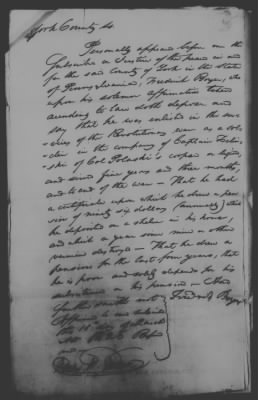 York County ss.
Personally appeared before me the
Subscriber a Justice of the peace in and
for the said County of York in the State
of Pennsylvania, Frederick Boyer, who
upon his solemn affirmation taken
according to law doth depose and
say that he was enlisted in the ser-
vice of the Revolutionary war as a sol-
dier in the company of Captain
of Col Polaski's corps or legion,
and served five years and three months,
and to end of the war — That he had
a certificate upon which he drew a pen
sion of ninety six dollars (annually) which
he deposited on a shelve in his house,
and which a year some mice or other
vermin destroyed — That he drew a
pension for the last four years, that
he is poor and solely depends for his
subsistence on his pension — And
further saith not
Frederick Boyer
Affirmed to and subscribed
the 18th day of March
before
me